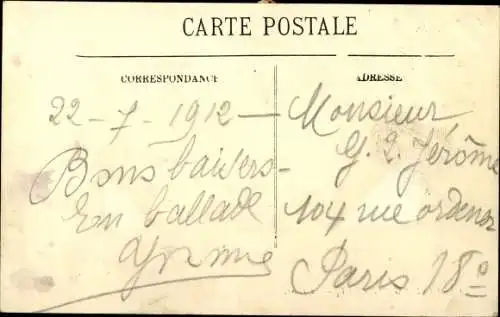 CARTE POSTALE
CORRESPONDANCE
ADRESSE
22-7-1912-
Bons baisers-
En ballade
Yvonne
Monsieur
G. L. Jérôme
104 rue ordener
Paris 18e